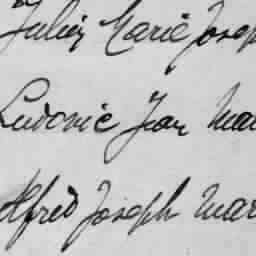 Julien Marie Josep
Ludovic Jean Mar
Alfred Joseph Mar